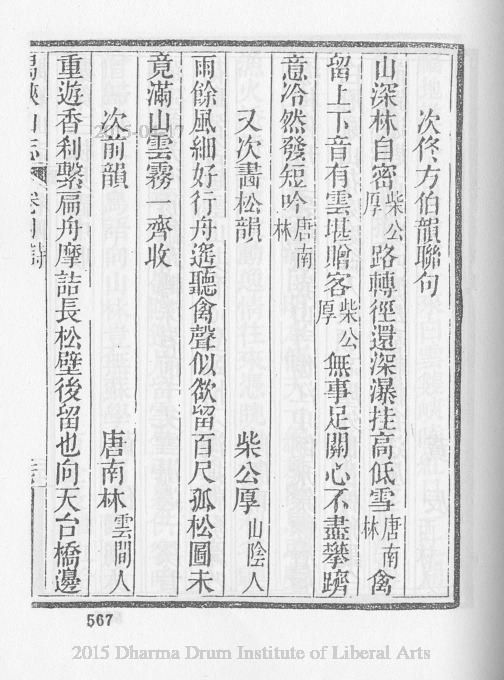 次佟方伯韻聯句
山深林自密柴公厚路轉徑還深瀑挂高低雪唐南林禽
留上下音有雲堪贈客柴公厚無事足關心不盡攀躋
意冷然發短吟唐南林
又次畫松韻 柴公厚山陰人
雨餘風細好行舟遙聽禽聲似欲留百尺孤松圖未
竟滿山雲霧一齊收
次前韻 唐南林雲間人
重遊香利繫扁舟摩詰長松壁後留也向天台橋邊
山志 卷 詩
567
2015 Dharma Drum Institute of Liberal Arts